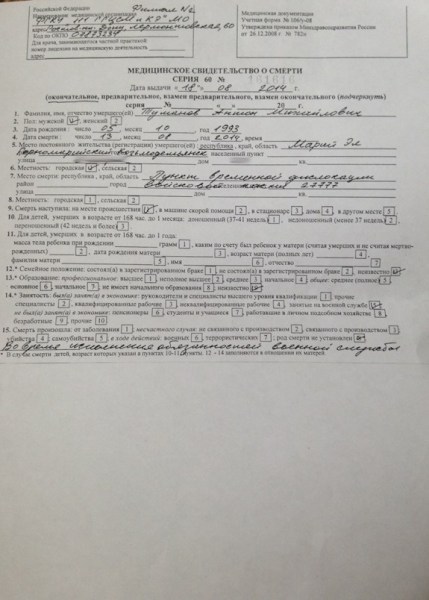 Российская Федерация
Филиал №2
ФГКУ "111 ГГЦСМ и КЭ" МО
Код по ОКПО
Для врача, занимающегося частной практикой
номер лицензии на медицинскую деятельность
адрес
Медицинская документация
Учетная форма № 106/у-08
Утверждена приказом Минздравсоцразвития России
от 26.12.2008 г № 782н
МЕДИЦИНСКОЕ СВИДЕТЕЛЬСТВО О СМЕРТИ
СЕРИЯ 60 №
Дата выдачи «18» 08 2014 г.
(окончательное, предварительное, взамен предварительного, взамен окончательного (подчеркнуть)
серия № « » 20 г.
1. Фамилия, имя, отчество умершего(ей) Туманов Антон Михайлович
2. Пол: мужской 1, женский 2
3. Дата рождения: число 05, месяц 10, год 1993
4. Дата смерти: число 13, месяц 08, год 2014, время
5. Место постоянного жительства (регистрации) умершего(ей): республика, край, область Марий Эл
Горномарийский Козьмодемьянск населенный пункт
улица дом кв.
6. Местность: городская 1, сельская 2
7. Место смерти: республика, край, область Пункт временной дислокации
район город
улица дом кв.
8. Местность: городская 1, сельская 2
9. Смерть наступила: на месте происшествия 1, в машине скорой помощи 2, в стационаре 3, дома 4, в другом месте 5
10. Для детей, умерших в возрасте от 168 час. до 1 месяца: доношенный (37-41 недель) 1, недоношенный (менее 37 недель) 2,
переношенный (42 недель и более) 3
11. Для детей, умерших в возрасте от 168 час. до 1 года:
масса тела ребенка при рождении грамм 1, каким по счету был ребенок у матери (считая умерших и не считая мертво-
рожденных) 2, дата рождения матери 3, возраст матери (полных лет) 4,
фамилия матери 5, имя 6, отчество 7
12.* Семейное положение: состоял(а) в зарегистрированном браке 1, не состоял(а) в зарегистрированном браке 2, неизвестно 3
13.* Образование: профессиональное: высшее 1, неполное высшее 2, среднее 3, начальное 4 общее: среднее (полное) 5,
основное 6 начальное 7, не имеет начального образования 8, неизвестно 9
14.* Занятость: был(а) занят(а) в экономике: руководители и специалисты высшего уровня квалификации 1, прочие
специалисты 2, квалифицированные рабочие 3, неквалифицированные рабочие 4, занятые на военной службе 5
не был(а) занят(а) в экономике: пенсионеры 6, студенты и учащиеся 7, работавшие в личном подсобном хозяйстве 8,
безработные 9, прочие 10
15. Смерть произошла: от заболевания 1, несчастного случая: не связанного с производством 2, связанного с производством 3
убийства 4 самоубийства 5 в ходе действий: военных 6, террористических 7; род смерти не установлен 8
Во время исполнения обязанностей военной службы
* В случае смерти детей, возраст которых указан в пунктах 10-11, пункты 12 - 14 заполняются в отношении их матерей.